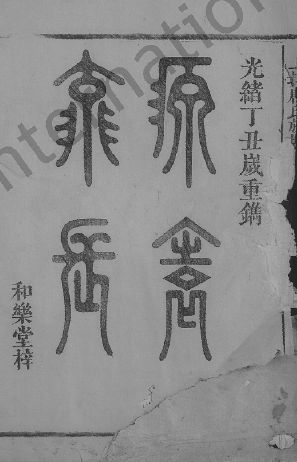 光緒丁丑歲重鐫
源遠
流長
和樂堂梓
nternation